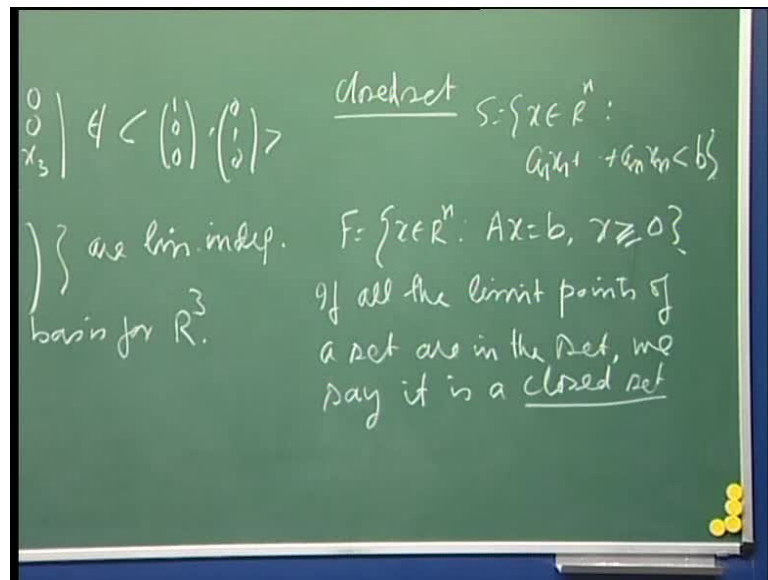 0
0
x₃ | ∉ < (1 0 0), (0 1 0) >
)} are lin. indep.
basis for R³.
Closed set S = {x ∈ Rⁿ :
a₁x₁ + + aₙxₙ < b}
F = {x ∈ Rⁿ : Ax = b, x ≥ 0}
If all the limit points of
a set are in the set, we
say it is a closed set